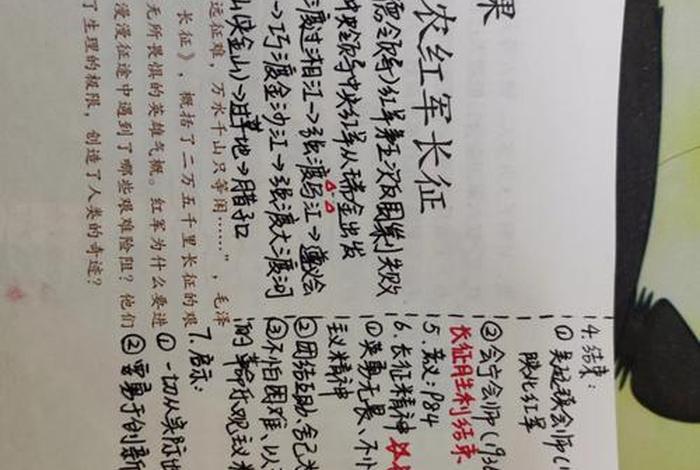 课
农红军长征
德领导)红军第五次反围剿失败
中央领导中央红军从瑞金出发
渡过湘江→强渡乌江→遵义会
→巧渡金沙江→强渡大渡河
山(夹金山)→过草地→腊子口
远征难，万水千山只等闲……”，毛泽
长征》，概括了二万五千里长征的艰
无所畏惧的英雄气概。红军为什么要进
漫漫征途中遇到了哪些艰难险阻？他们
了生理的极限，创造了人类的奇迹？
4.结束：
①吴起镇会师(
陕北红军
②会宁会师(193
长征胜利结束
5.意义：P84
6.长征精神
①英勇无畏、不怕
主义精神
②团结互助、舍己
③不怕困难、以
的革命乐观主义
7.启示：
①一切从实际出
②要勇于创新